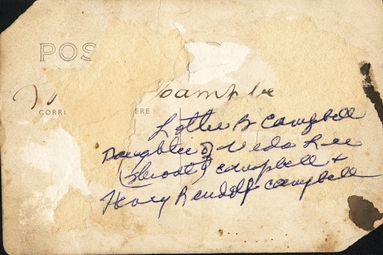 POS
CORR ERE
Lottie B Campbell
Daughter of Veda Lee
(Shroat) Campbell +
Harry Rendolf Campbell